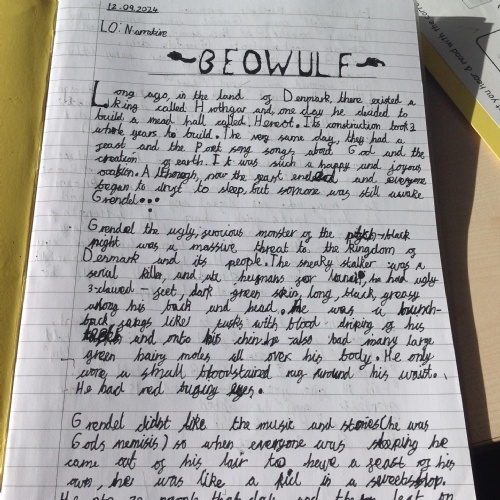 12.09.2024
LO: Narrative
~BEOWULF~
Long ago, in the land of Denmark, there existed a
king called Hrothgar and one day he decided to
build a mead hall called Hereot. Its construction took 2
whole years to build. The very same day, they had a
feast and the Poet sang songs about God and the
creation of earth. It was such a happy and joyous
occasion. Although, now the feast ended and everyone
began to drift to sleep, but someone was still awake
Grendel...
Grendel the ugly, furious monster of the pitch-black
night was a massive threat to the kingdom of
Denmark and its people. The sneaky stalker was a
serial killer, and ate humans for lunch, he had ugly
3-clawed-feet, dark green skin, long, black, greasy
among his back and head. He was a hunch-
back fangs like tusks with blood driping of his
teeth and onto his chin he also had many large
green hairy moles all over his body. He only
wore a small bloodstained rug around his waist.
He had red buging eyes.
Grendel didnt like the music and stories (he was
Gods nemisis) so when everyone was sleeping he
came out of his lair to have a feast of his
own, he was like a kid in a sweetshop.
He ate 30 people that day and the last on
you hear & read with the